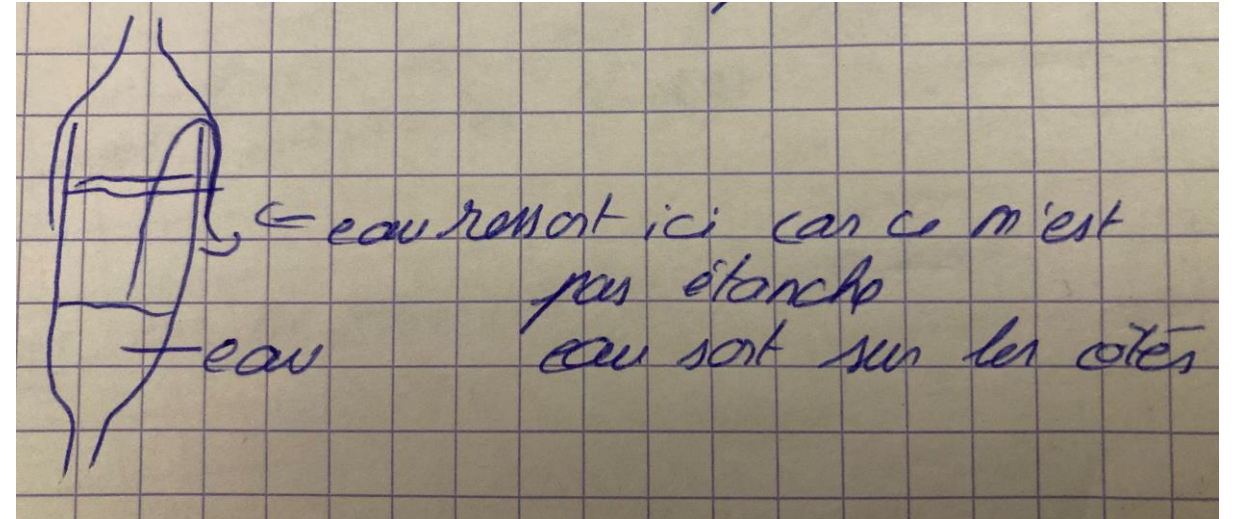 ← eau ressort ici car ce n'est
pas étanche
eau
eau sort sur les côtés